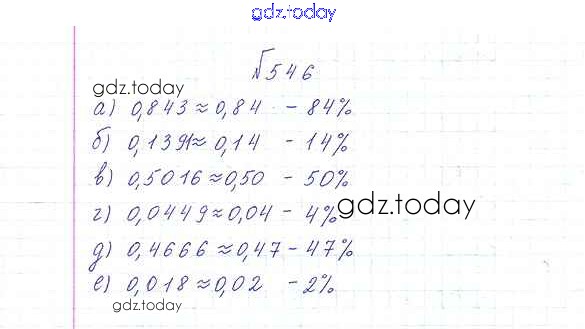 gdz.today
№546
gdz.today
а) 0,843≈0,84 - 84%
б) 0,139≈0,14 - 14%
в) 0,5016≈0,50 - 50%
г) 0,0449≈0,04 - 4%
gdz.today
д) 0,4666≈0,47 - 47%
е) 0,018≈0,02 - 2%
gdz.today